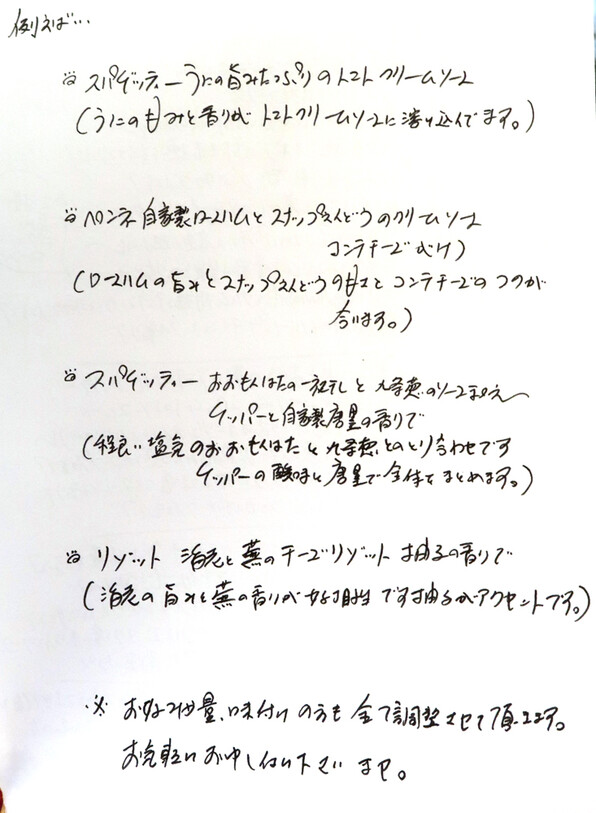 例えば…
スパゲッティー うにの旨みたっぷりのトマトクリームソース
(うにの甘みと香りが トマトクリームソースに溶け込んでます。)
ペンネ 自家製ロースハムと スナップえんどうのクリームソース
コンテチーズがけ)
(ロースハムの旨みとスナップえんどうの甘さと コンテチーズのコクが
合います。)
スパゲッティー おおもんはたの一夜干しと 九条葱のソース
ケッパーと自家製唐墨の香りで
(程良い塩気のおおもんはたと九条葱とのとり合わせです
ケッパーの酸味と唐墨で全体をまとめます。)
リゾット 海老と蕪のチーズリゾット 柚子の香りで
(海老の旨みと蕪の香りが好相性です柚子がアクセントです。)
※ お好みや量、味付けの方も全て調整させて頂きます。
お気軽にお申し付け下さいませ。